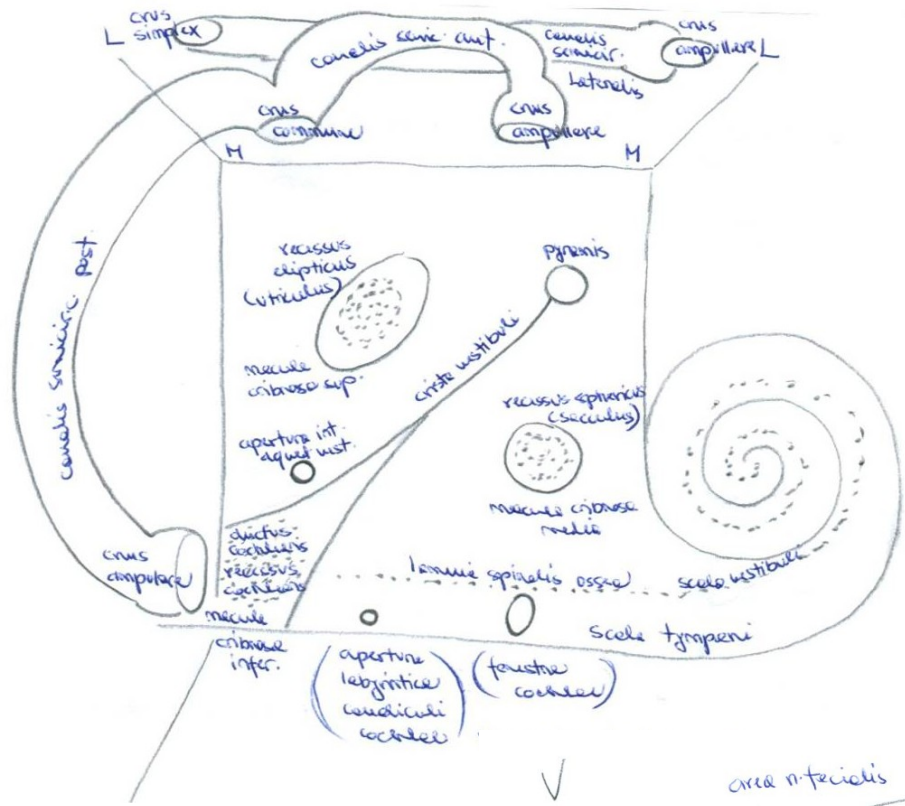 L
crus
simplex
canalis semic. ant.
canalis
semicir.
Lateralis
crus
ampullare
L
crus
commune
crus
ampullare
M
M
canalis semicir. post.
recissus
elipticus
(utriculus)
macula
cribrosa sup.
pyramis
crista vestibuli
recissus sphericus
(sacculus)
apertura int.
aquet vest.
macula cribrosa
media
ductus
cochlearis
recissus
cochlearis
crus
ampulare
macula
cribrosa
infer.
lamina spiralis ossea
scala vestibuli
scala tympani
(apertura
labyrintica
canaliculi
cochlea)
(fenestra
cochlea)
V
area n. facialis